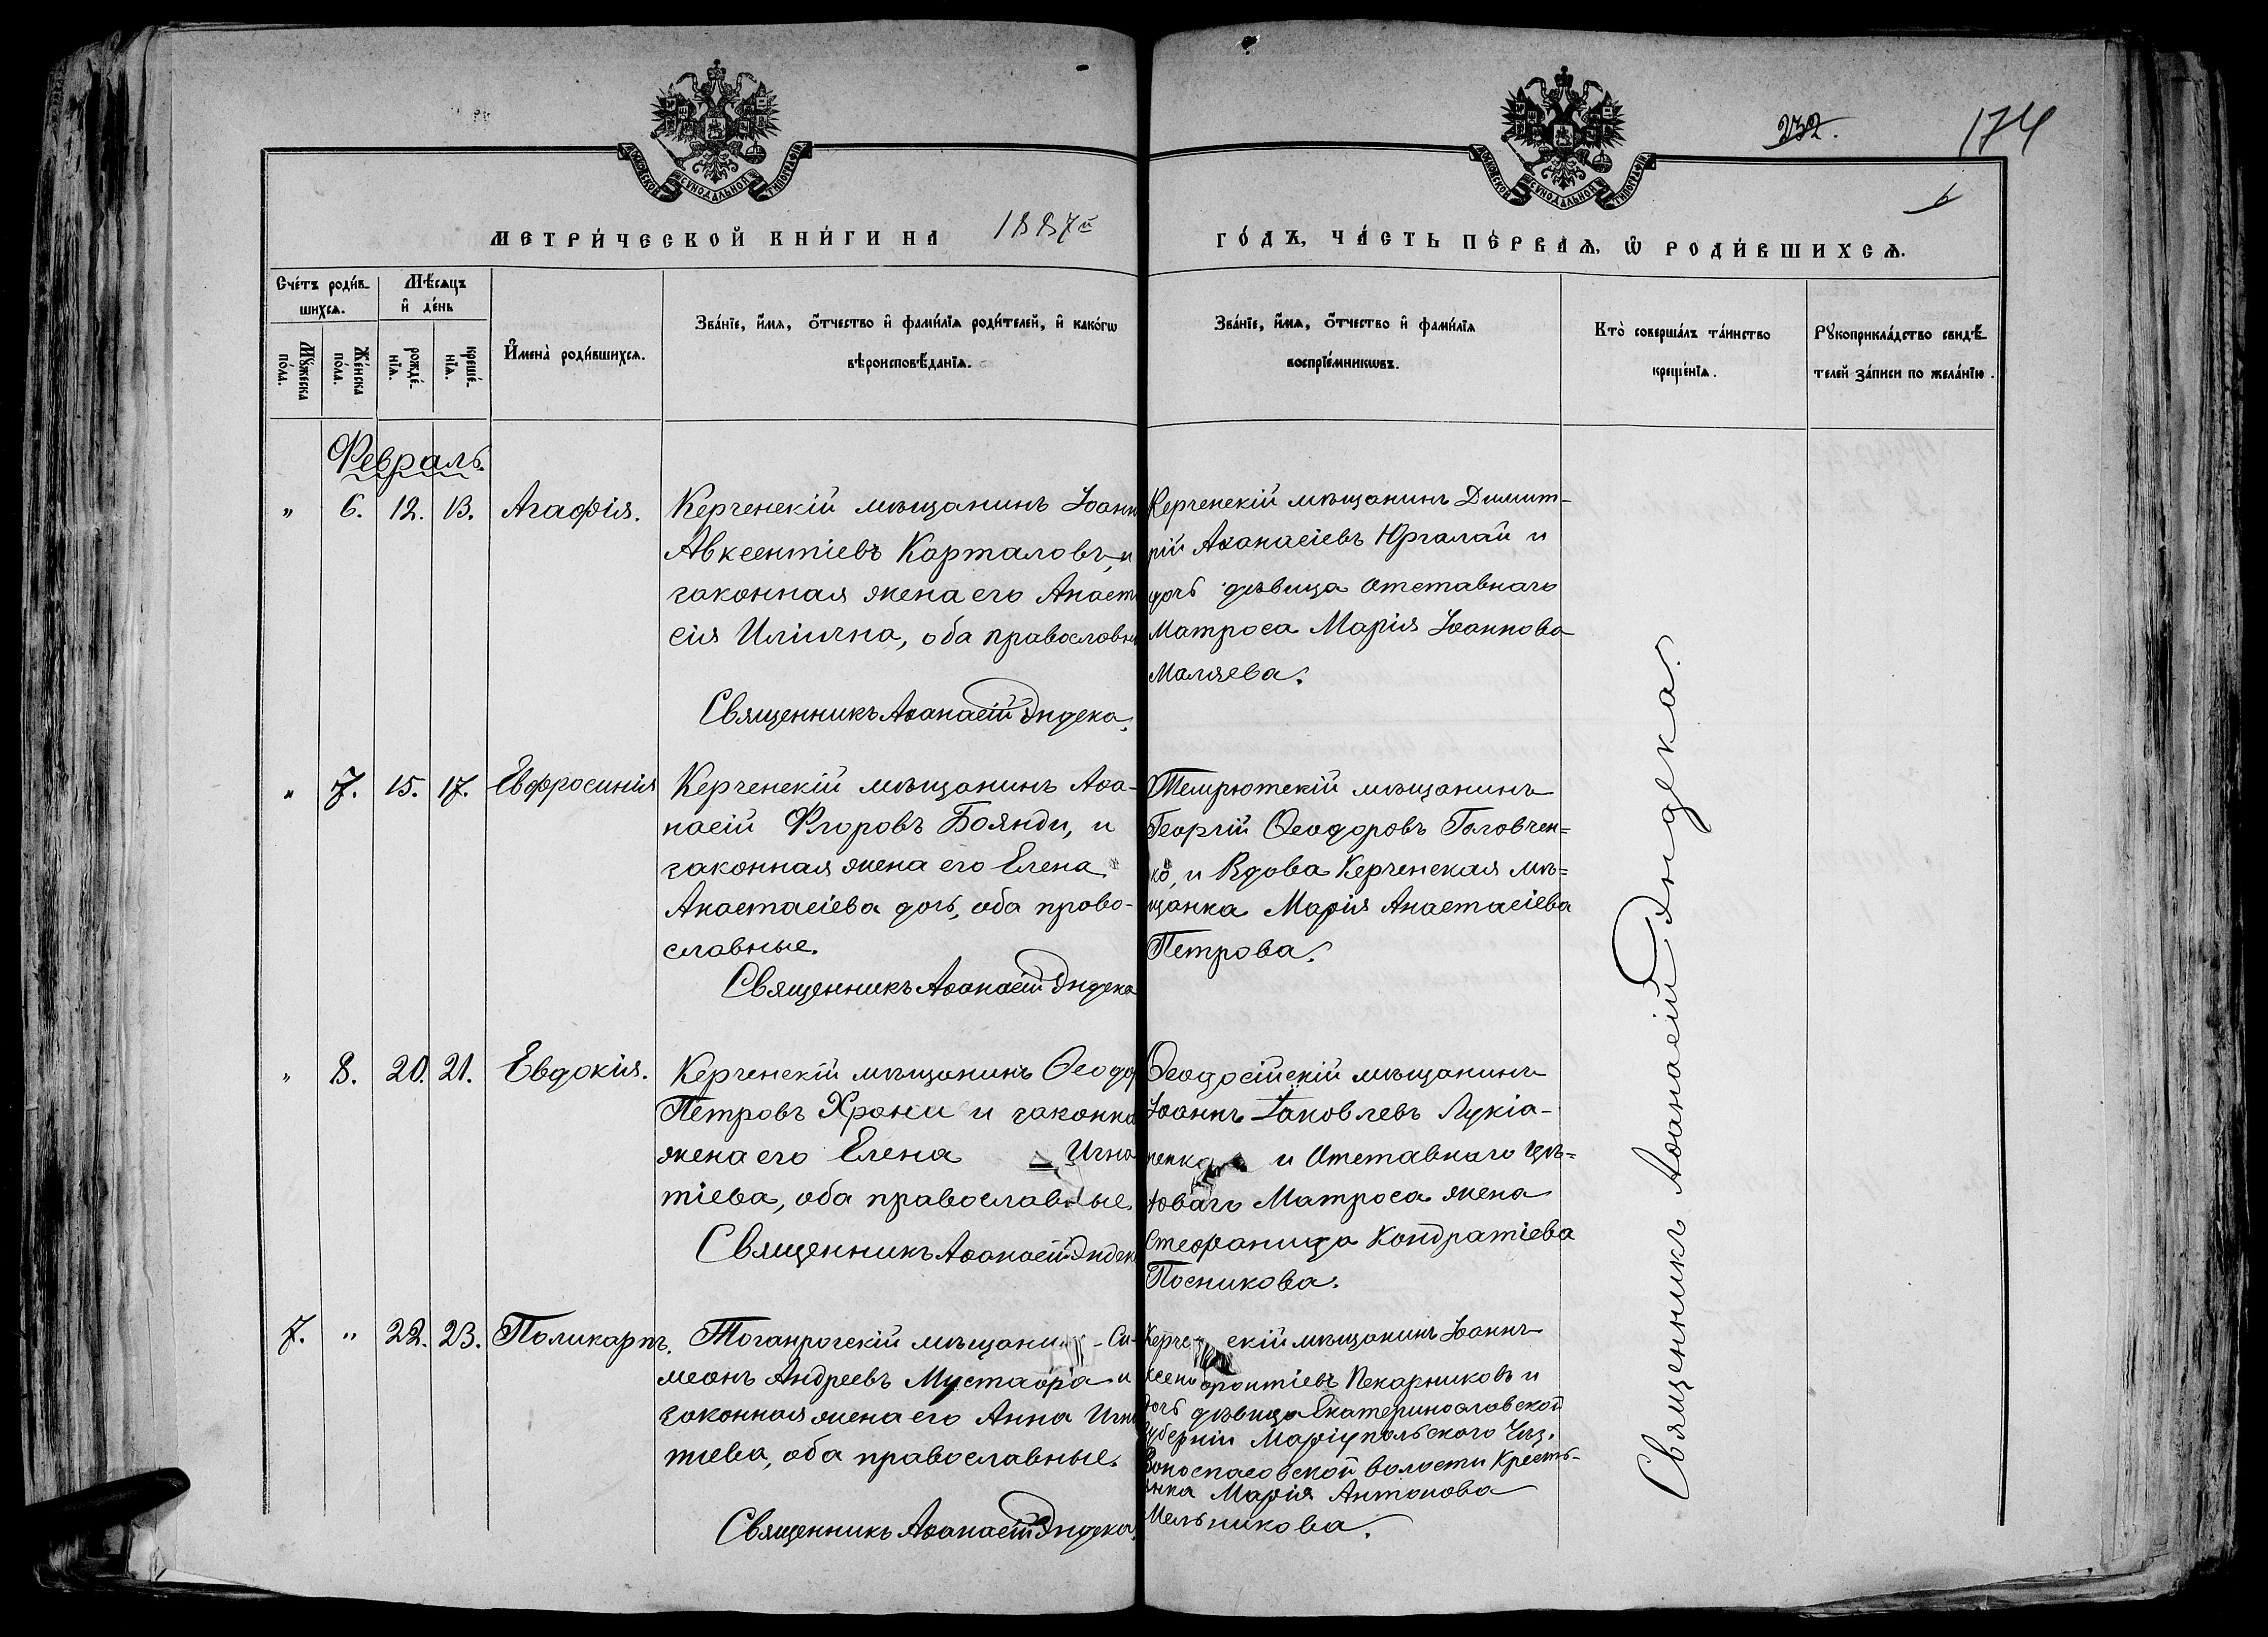 232.
174
6
МОСКОВСКОЙ СѴНОДАЛЬНОЙ ТИПОГРАФІИ
МОСКОВСКОЙ СѴНОДАЛЬНОЙ ТИПОГРАФІИ
МЕТРИ́ЧЕСКОЙ КНИ́ГИ НА 1887й
ГО́ДЪ, ЧА́СТЬ ПЕ́РВАѦ, Ѡ҆ РОДИ́ВШИХСѦ.
Сче́тъ роди́в-
шихсѧ.
Мѣ́сѧцъ
и҆ де́нь
Мꙋ́жеска по́ла.
Же́нска по́ла.
рожде́-
нїѧ.
креще́-
нїѧ.
И҆мена̀ роди́вшихсѧ.
Зва́нїе, и҆́мѧ, ѻ҆́тчество и҆ фами́лїѧ роди́телей, и҆ како́гѡ
вѣроисповѣ́данїѧ.
Зва́нїе, и҆́мѧ, ѻ҆́тчество и҆ фами́лїѧ
воспрїе́мникѡвъ.
Кто̀ соверша́лъ та́инство
креще́нїѧ.
Рꙋкоприкла́дство свидѣ́-
телей за́писи по жела́нїю.
Февраль.
" 6. 12. 13. Агафія.
Керченскій мѣщанинъ Іоанн
Авксентіевъ Карталовъ, и
законная жена его Анаст
сія Иліична, оба православн
Священникъ Аѳанасій Эндека.
Керченскій мѣщанинъ Димит-
рій Аѳанасіевъ Юргалай и
дочь дѣвица отставнаго
Матроса Марія Іоаннова
Маляева.
" 7. 15. 17. Евфросинія
Керченскій мѣщанинъ Аѳа-
насій Фгоровъ Боянди, и
законная жена его Елена
Анастасіева дочь, оба право-
славные.
Священникъ Аѳанасій Эндека
Темрютскій мѣщанинъ
Георгій Ѳеодоровъ Головчен=
ко, и Вдова Керченская мѣ=
щанка Марія Анастасіева
Петрова.
" 8. 20. 21. Евдокія.
Керченскій мѣщанинъ Ѳеодо
Петровъ Хрони и законна
жена его Елена Игна
тіева, оба православные.
Священникъ Аѳанасій Эндека
Ѳеодосійскій мѣщанинъ
Іоаннъ Іаковлевъ Лукіа-
ненко и Отставнаго
Матроса жена
Стефанида Кондратіева
Посникова.
7. " 22. 23. Поликарпъ.
Таганрогскій мѣщани - Си-
меонъ Андреевъ Мустафа и
законная жена его Анна Игна
тіева, оба православные.
Священникъ Аѳанасій Эндека.
Керче скій мѣщанинъ Іоаннъ
Ксенофонтіевъ Пекарниковъ и
дочь дѣвица Екатеринославской
губерніи Маріупольского Уѣз.
Новоспасовской волости Кресть-
янка Марія Антонова
Мельникова.
Священникъ Аѳанасій Эндека.